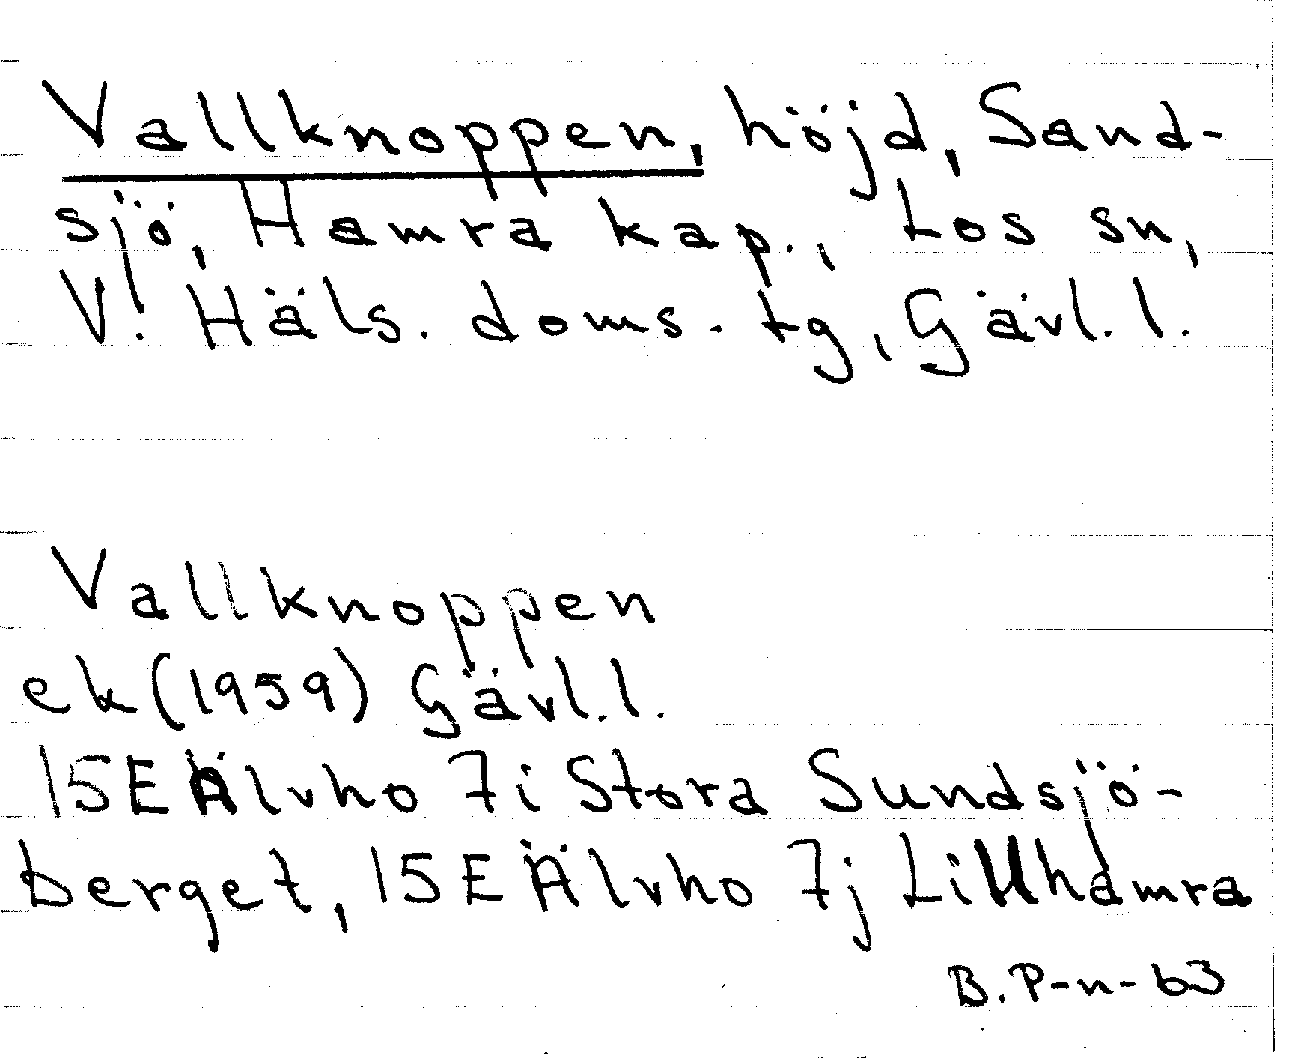 Vallknoppen, höjd, Sand-
sjö, Hamra kap., Los sn,
V! Häls. doms. tg, Gävl. l.
Vallknoppen
ek (1959) Gävl. l.
15E Älvho 7i Stora Sundsjö-
berget, 15E Älvho 7j Lillhamra
B. P-n-63